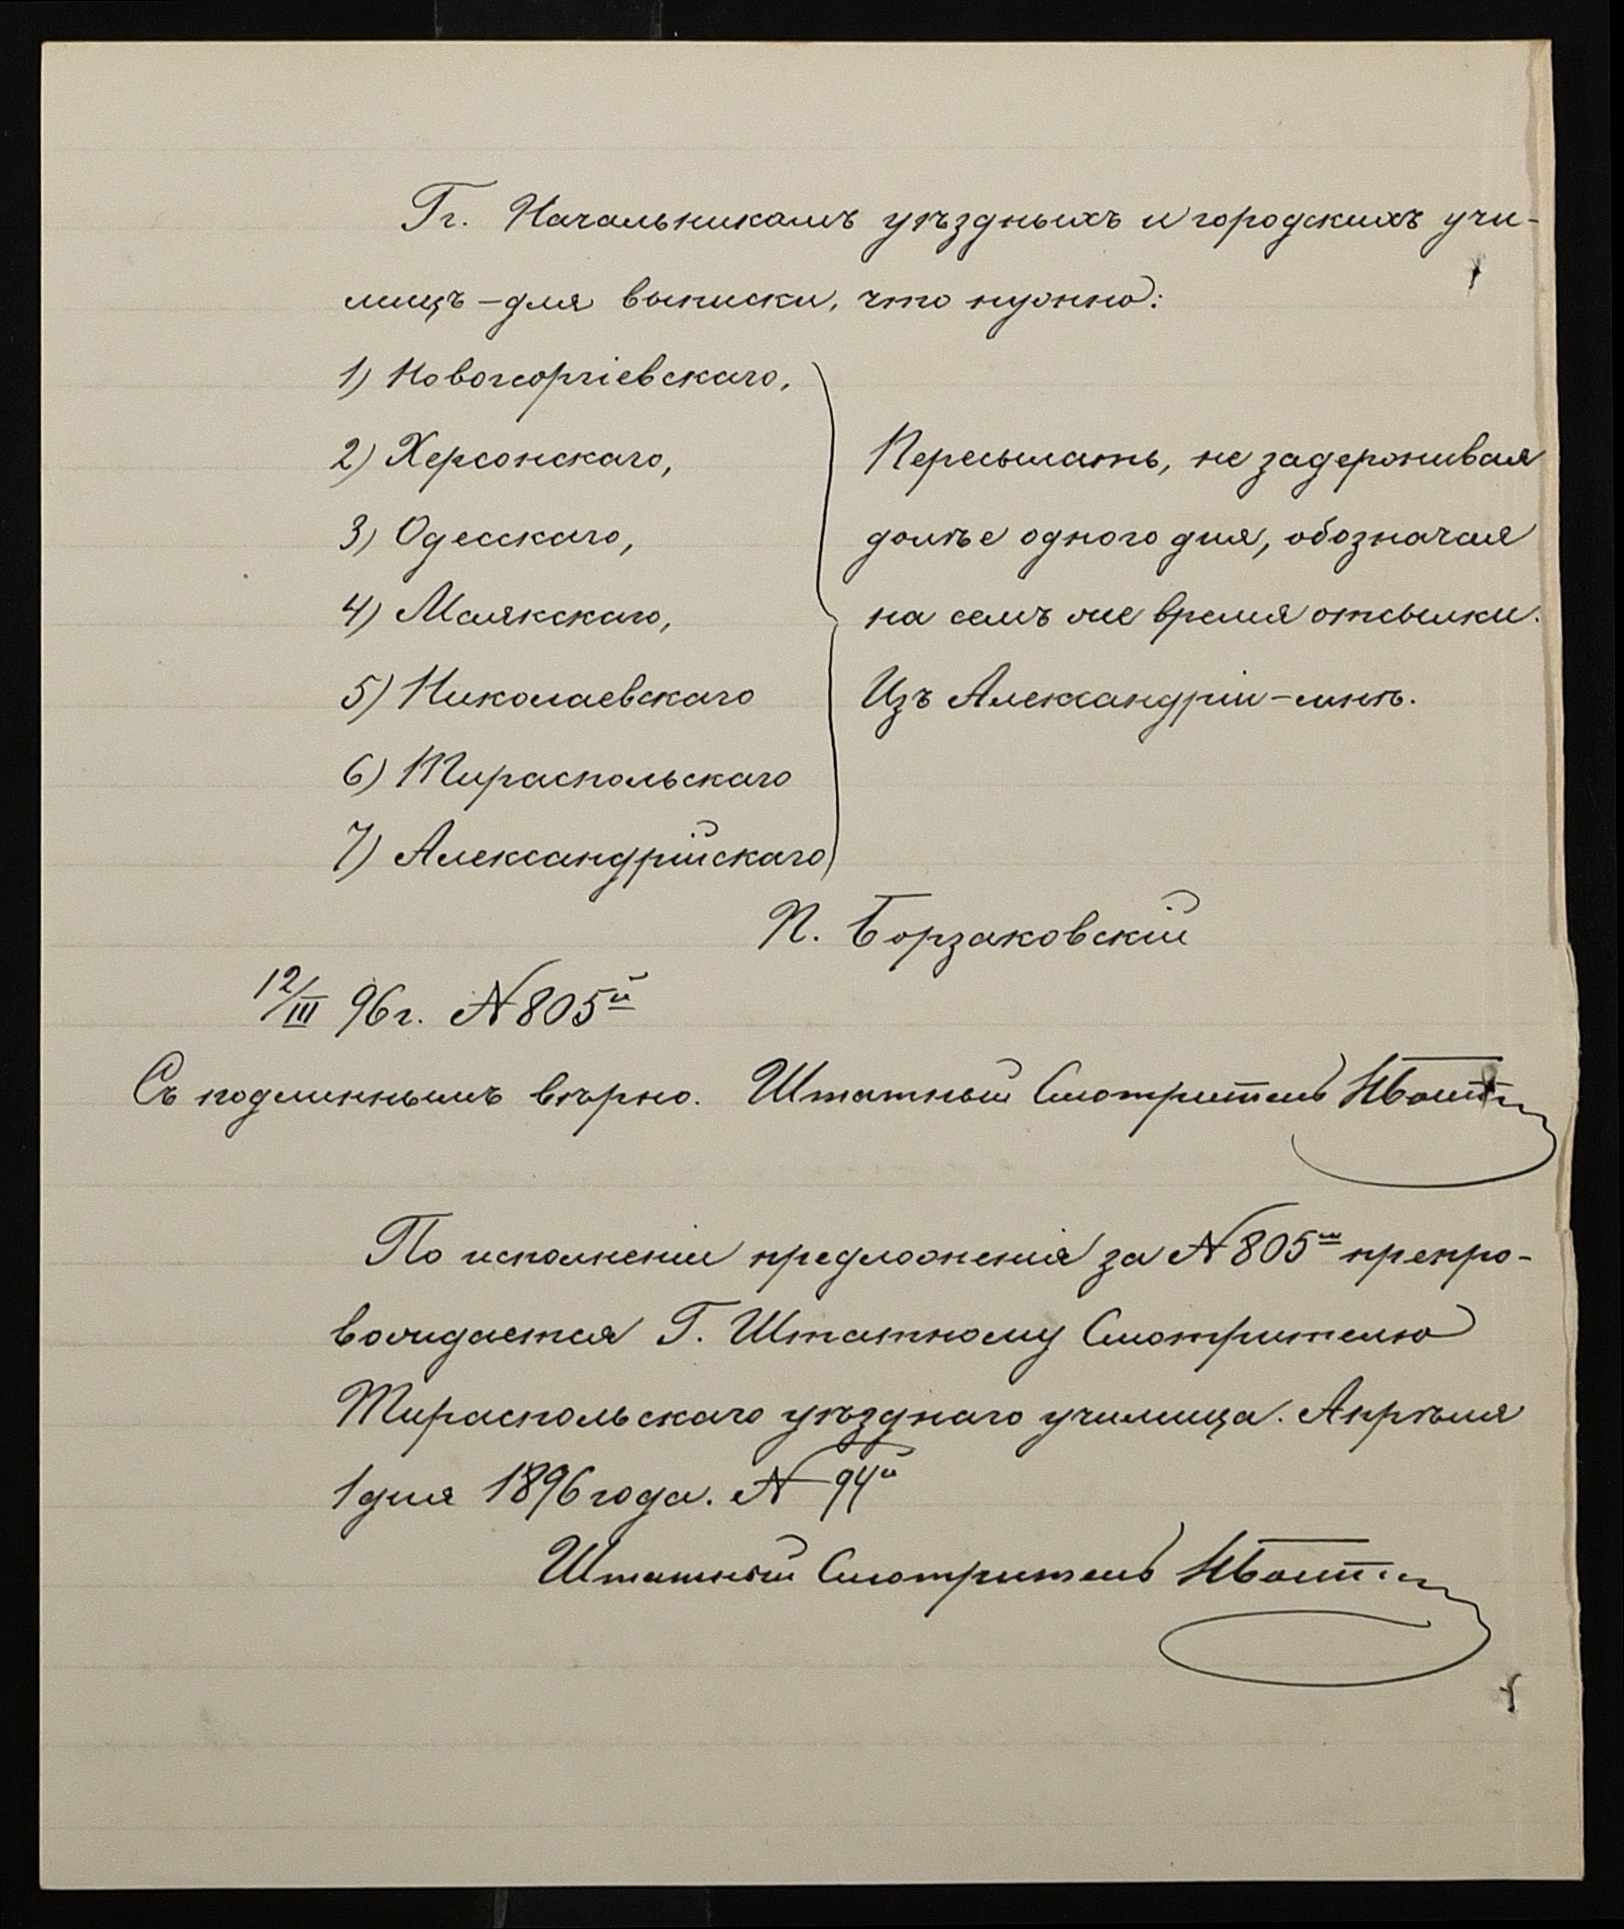 Гг. Начальникамъ уѣздныхъ и городскихъ учи-
лищъ – для выписки, что нужно:
1) Новогеоргіевскаго,
2) Херсонскаго,
3) Одесскаго,
4) Маякскаго,
5) Николаевскаго
6) Тираспольскаго
7) Александрійскаго
Пересылать, не задерживая
долѣе одного дня, обозначая
на семъ же время отсылки.
Изъ Александріи – мнѣ.
П. Борзаковскій
12/III 96 г. № 805й
Съ подлиннымъ вѣрно. Штатный Смотритель
По исполненіи предложенія за № 805мъ препро-
вождается Г. Штатному Смотрителю
Тираспольскаго уѣзднаго училища. Апрѣля
1 дня 1896 года. № 94й
Штатный Смотритель